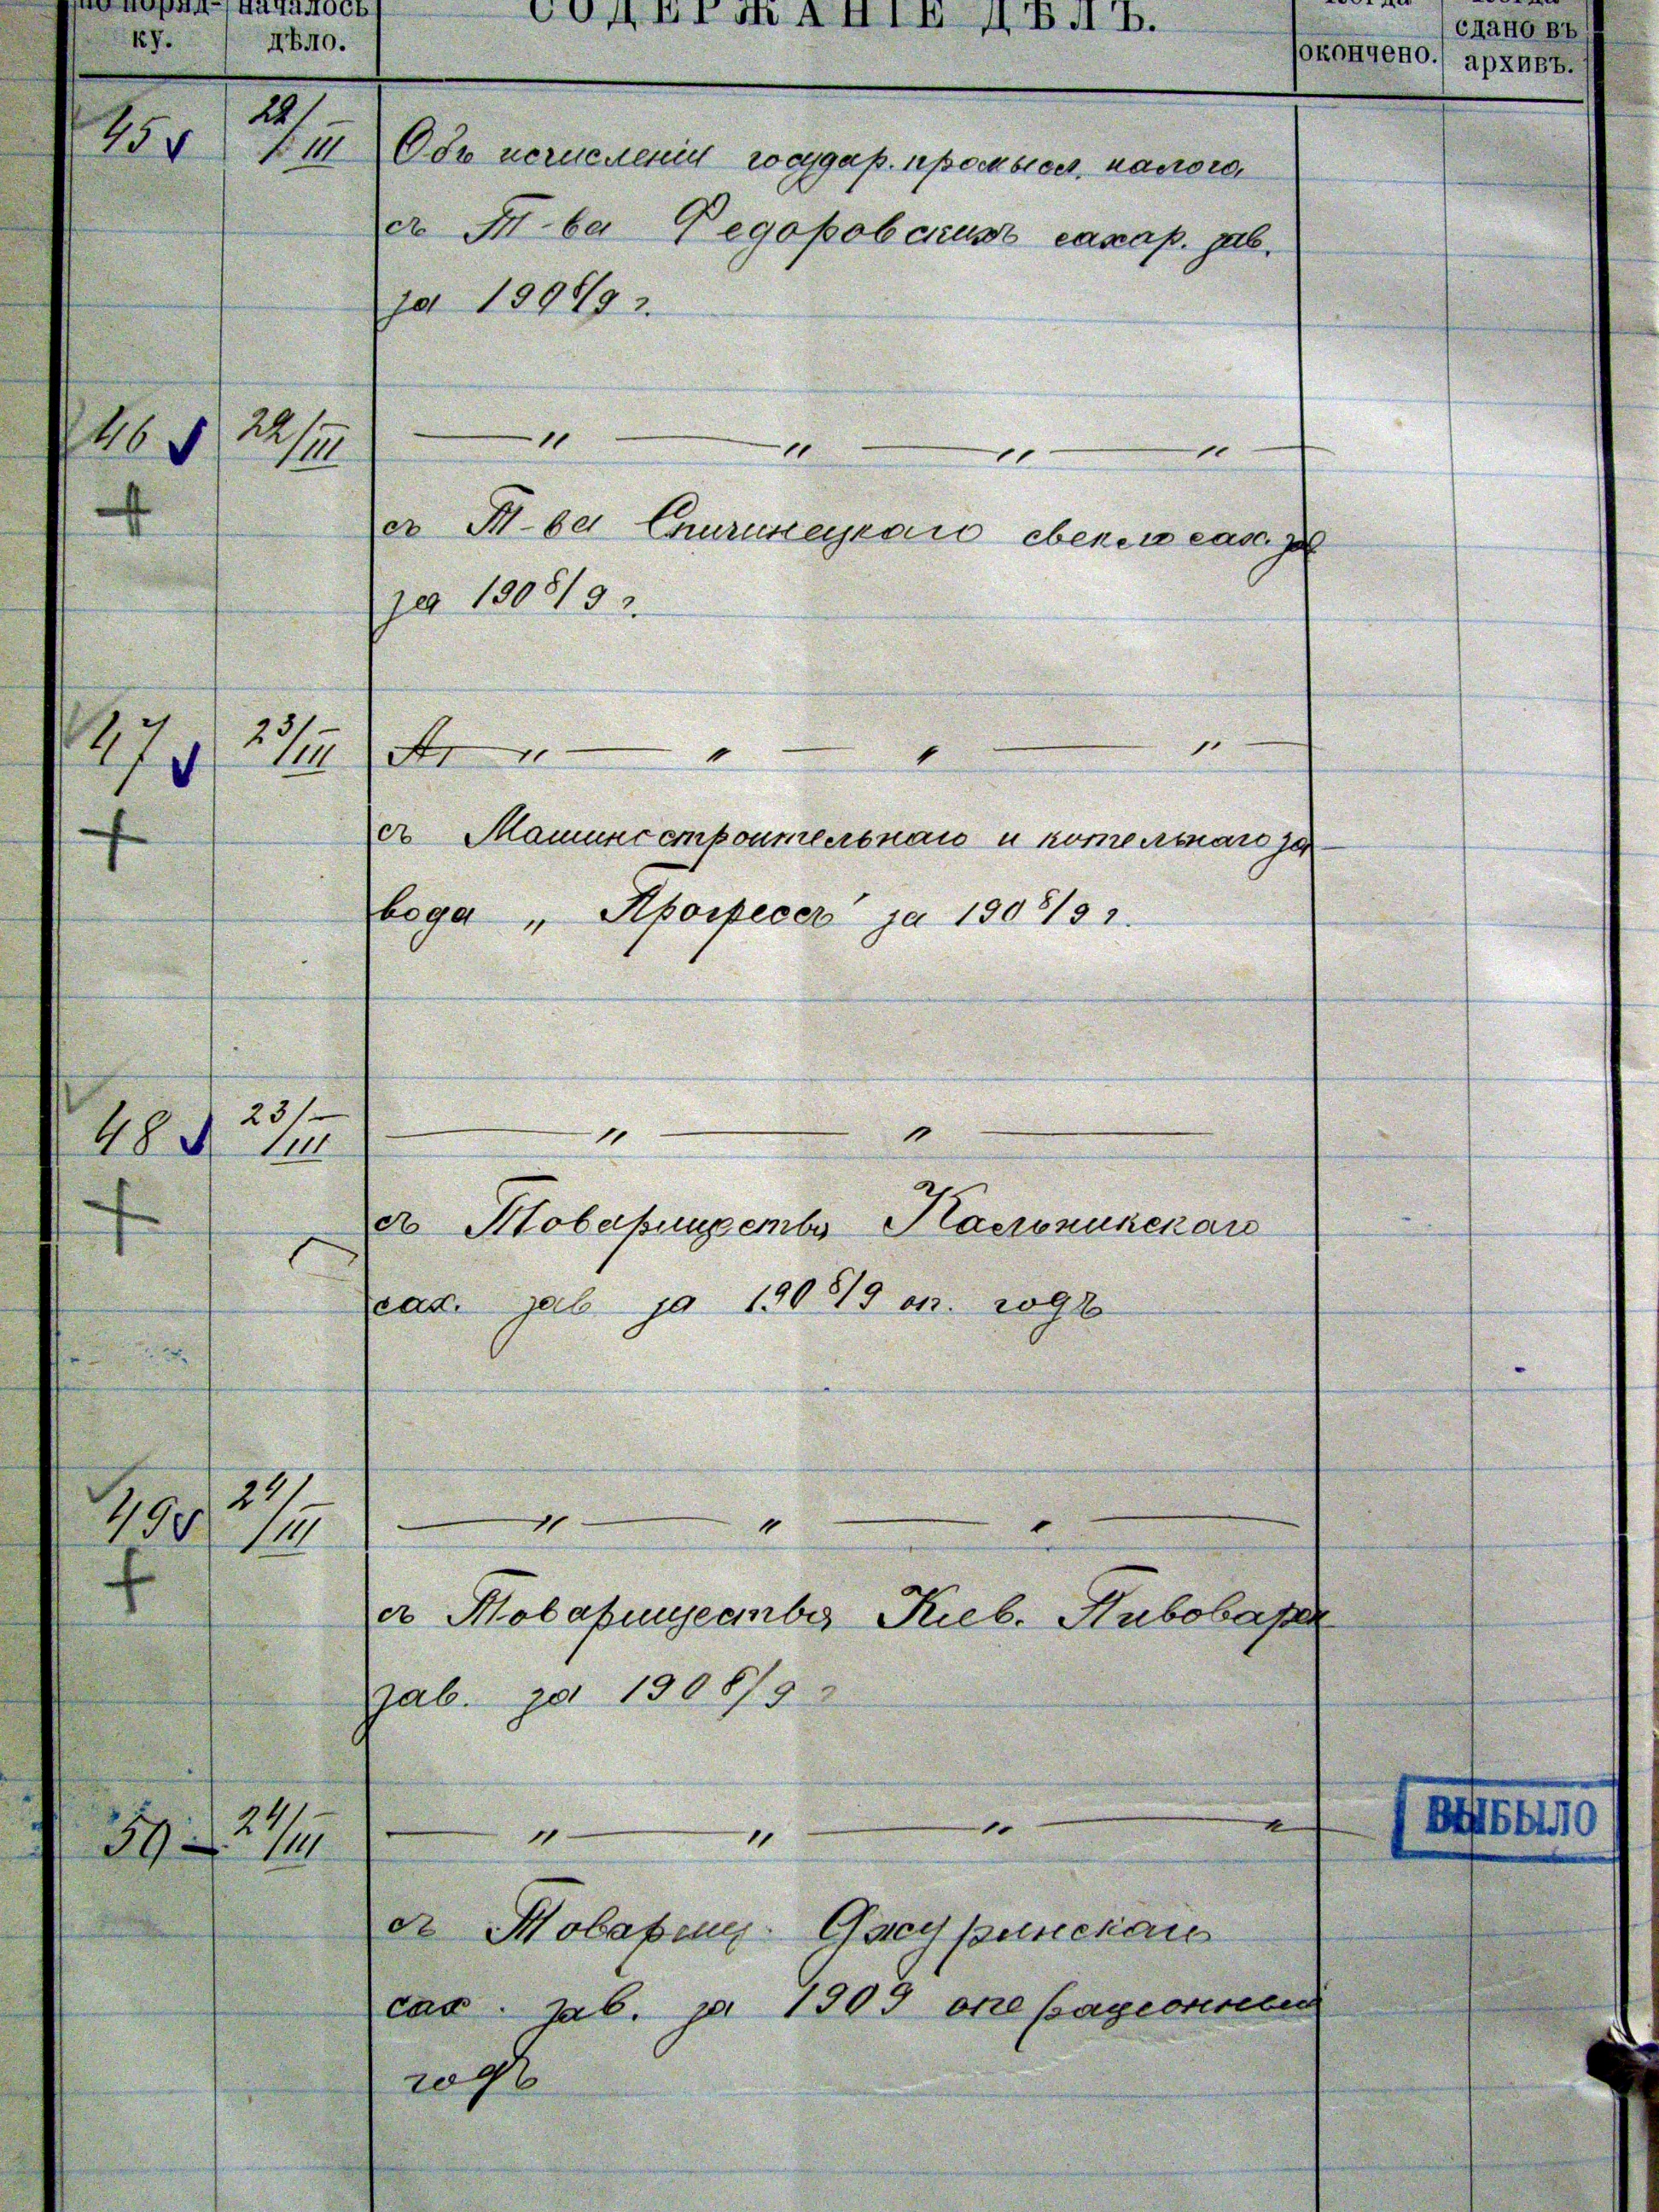 по поряд- началось СОДЕРЖАНІЕ ДѢЛЪ. Когда Когда
ку. дѣло. окончено. сдано въ
архивъ.
45 22/III Объ исчисленіи государ. промысл. налога
съ Т-ва Федоровскихъ сахар. зав.
за 1908/9 г.
46 22/III — " — " — " — " —
съ Т-ва Спичинецкаго свеклосах. зав
за 1908/9 г.
47 23/III " — " — " — " —
съ Машиностроительнаго и котельнаго за-
вода „Прогрессъ" за 1908/9 г.
48 23/III — " — " —
съ Товарищества Кальникскаго
сах. зав за 1908/9 оп. годъ
49 24/III — " — " — " —
съ Товарищества Киев. Пивоварен
зав. за 1908/9 г
50 24/III — " — " — " — " —
ВЫБЫЛО
съ Товарищ. Джуринскаго
сах. зав. за 1909 операціонный
годъ